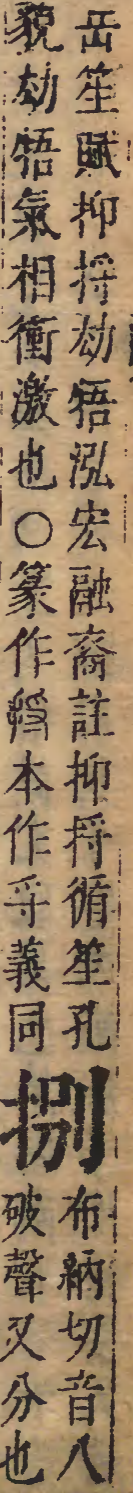 岳笙賦抑捋劫牾泓宏融裔註抑捋循笙孔
貌劫牾氣相衝激也○篆作𢪇本作寽義同
捌
布納切音八
破聲又分也